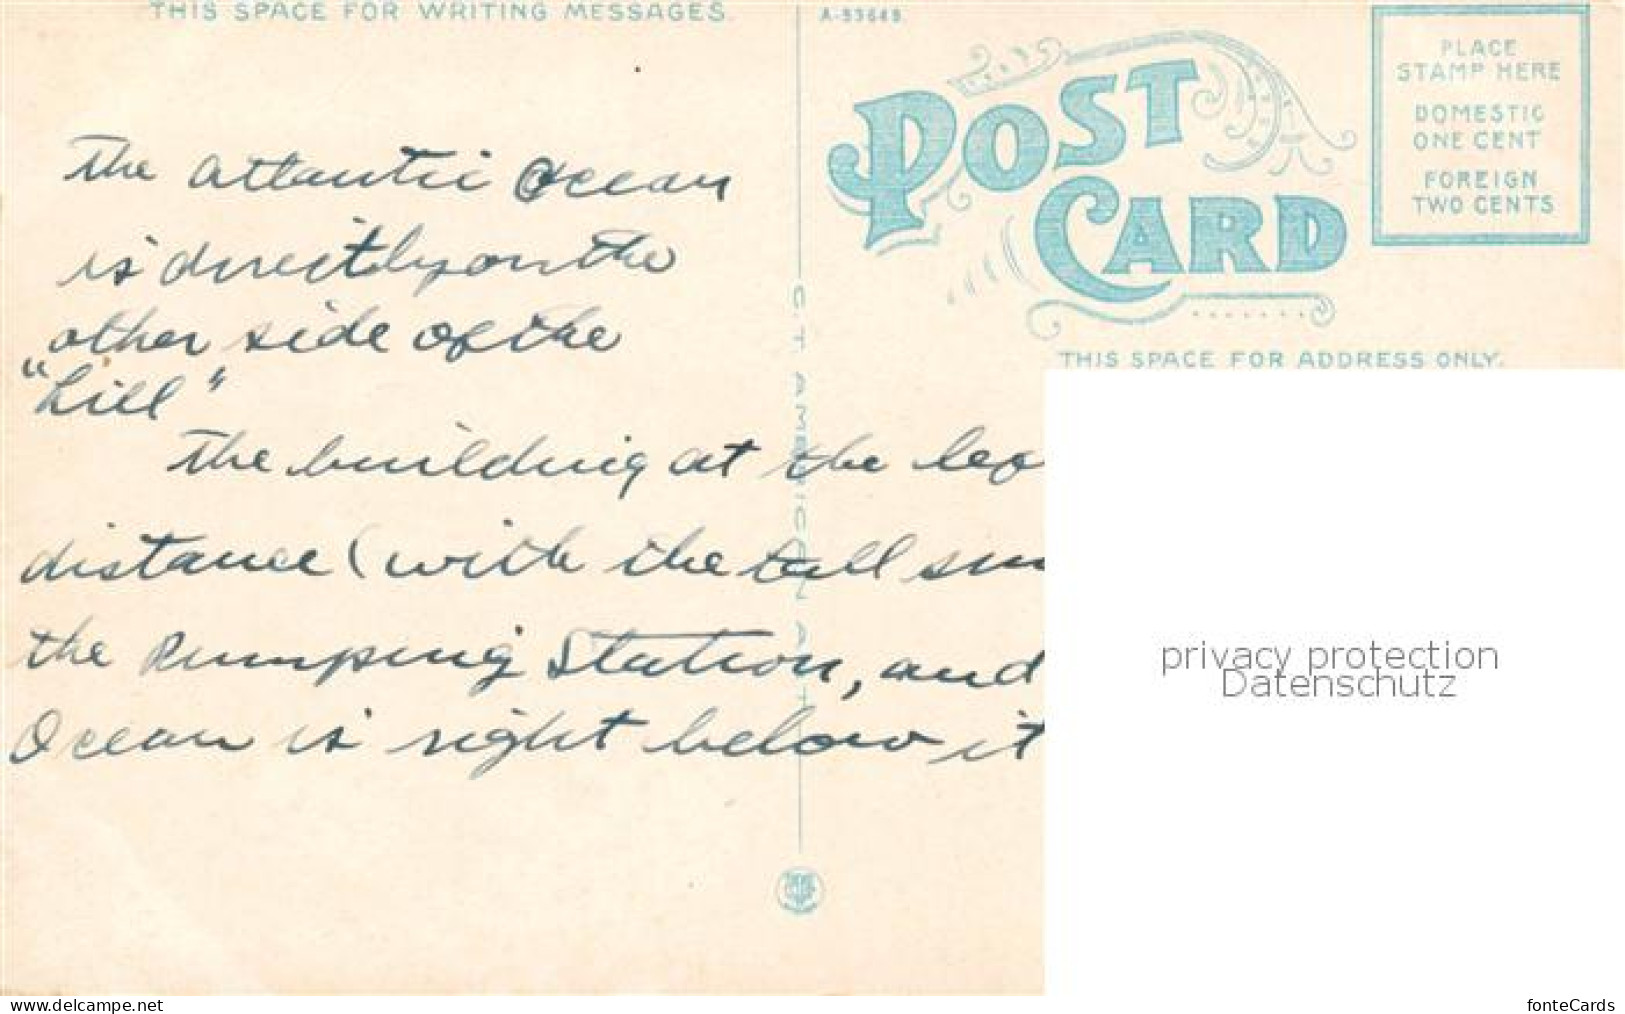 THIS SPACE FOR WRITING MESSAGES.
A-93649
The Atlantic Ocean
is directly on the
other side of the
"hill"
The building at the
distance (with the tall
the Pumping Station, and
Ocean is right below it
C.T. AMERICAN ART
POST CARD
PLACE
STAMP HERE
DOMESTIC
ONE CENT
FOREIGN
TWO CENTS
THIS SPACE FOR ADDRESS ONLY.
privacy protection
Datenschutz
www.delcampe.net
fonteCards